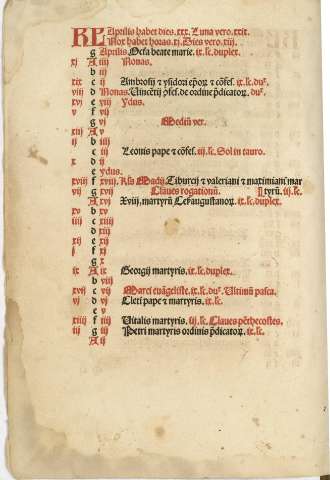 KL Aprilis habet dies. xxx. Luna vero. xxix.
Nox habet horas. xj. Dies vero. xiij.
g Aprilis. Octa beate marie. ix. lc. duplex.
xj A iiij Nonas.
b iij
xix c ij Ambrosij & ysidori epōr. & cōfes. ix. lc. duꝰ.
viij d Nonas. Vincētij ꝯfes. de ordine p̄dicatoꝝ. duꝰ.
xvj e viij ydus.
v f vij
g vj Mediū ver.
xiij A v
ij b iiij
c iij Leonis pape & cōfes. iij. lc. Sol in tauro.
x d ij
e ydus.
xviij f xviij. Kl'as Madij. Tiburcij & valeriani & maximiani mar
vij g xvij Claues rogationū. tyrū. iij. lc.
A xvj Xviij. martyrū Cesaraugustanoꝝ. ix. lc. duplex.
xv b xv
iiij c xiiij
d xiij
xij e xij
j f xj
g x
ix A ix Georgij martyris. ix. lc. duplex.
b viij
xvij c vij Marci euāgeliste. ix. lc. duꝰ. Ultimū pasca.
vj d vj Cleti pape & martyris. ix. lc.
e v
xiiij f iiij Uitalis martyris. iij. lc. Claues pēthecostes.
iij g iij Petri martyris ordinis p̄dicatoꝝ. ix. lc.
A ij